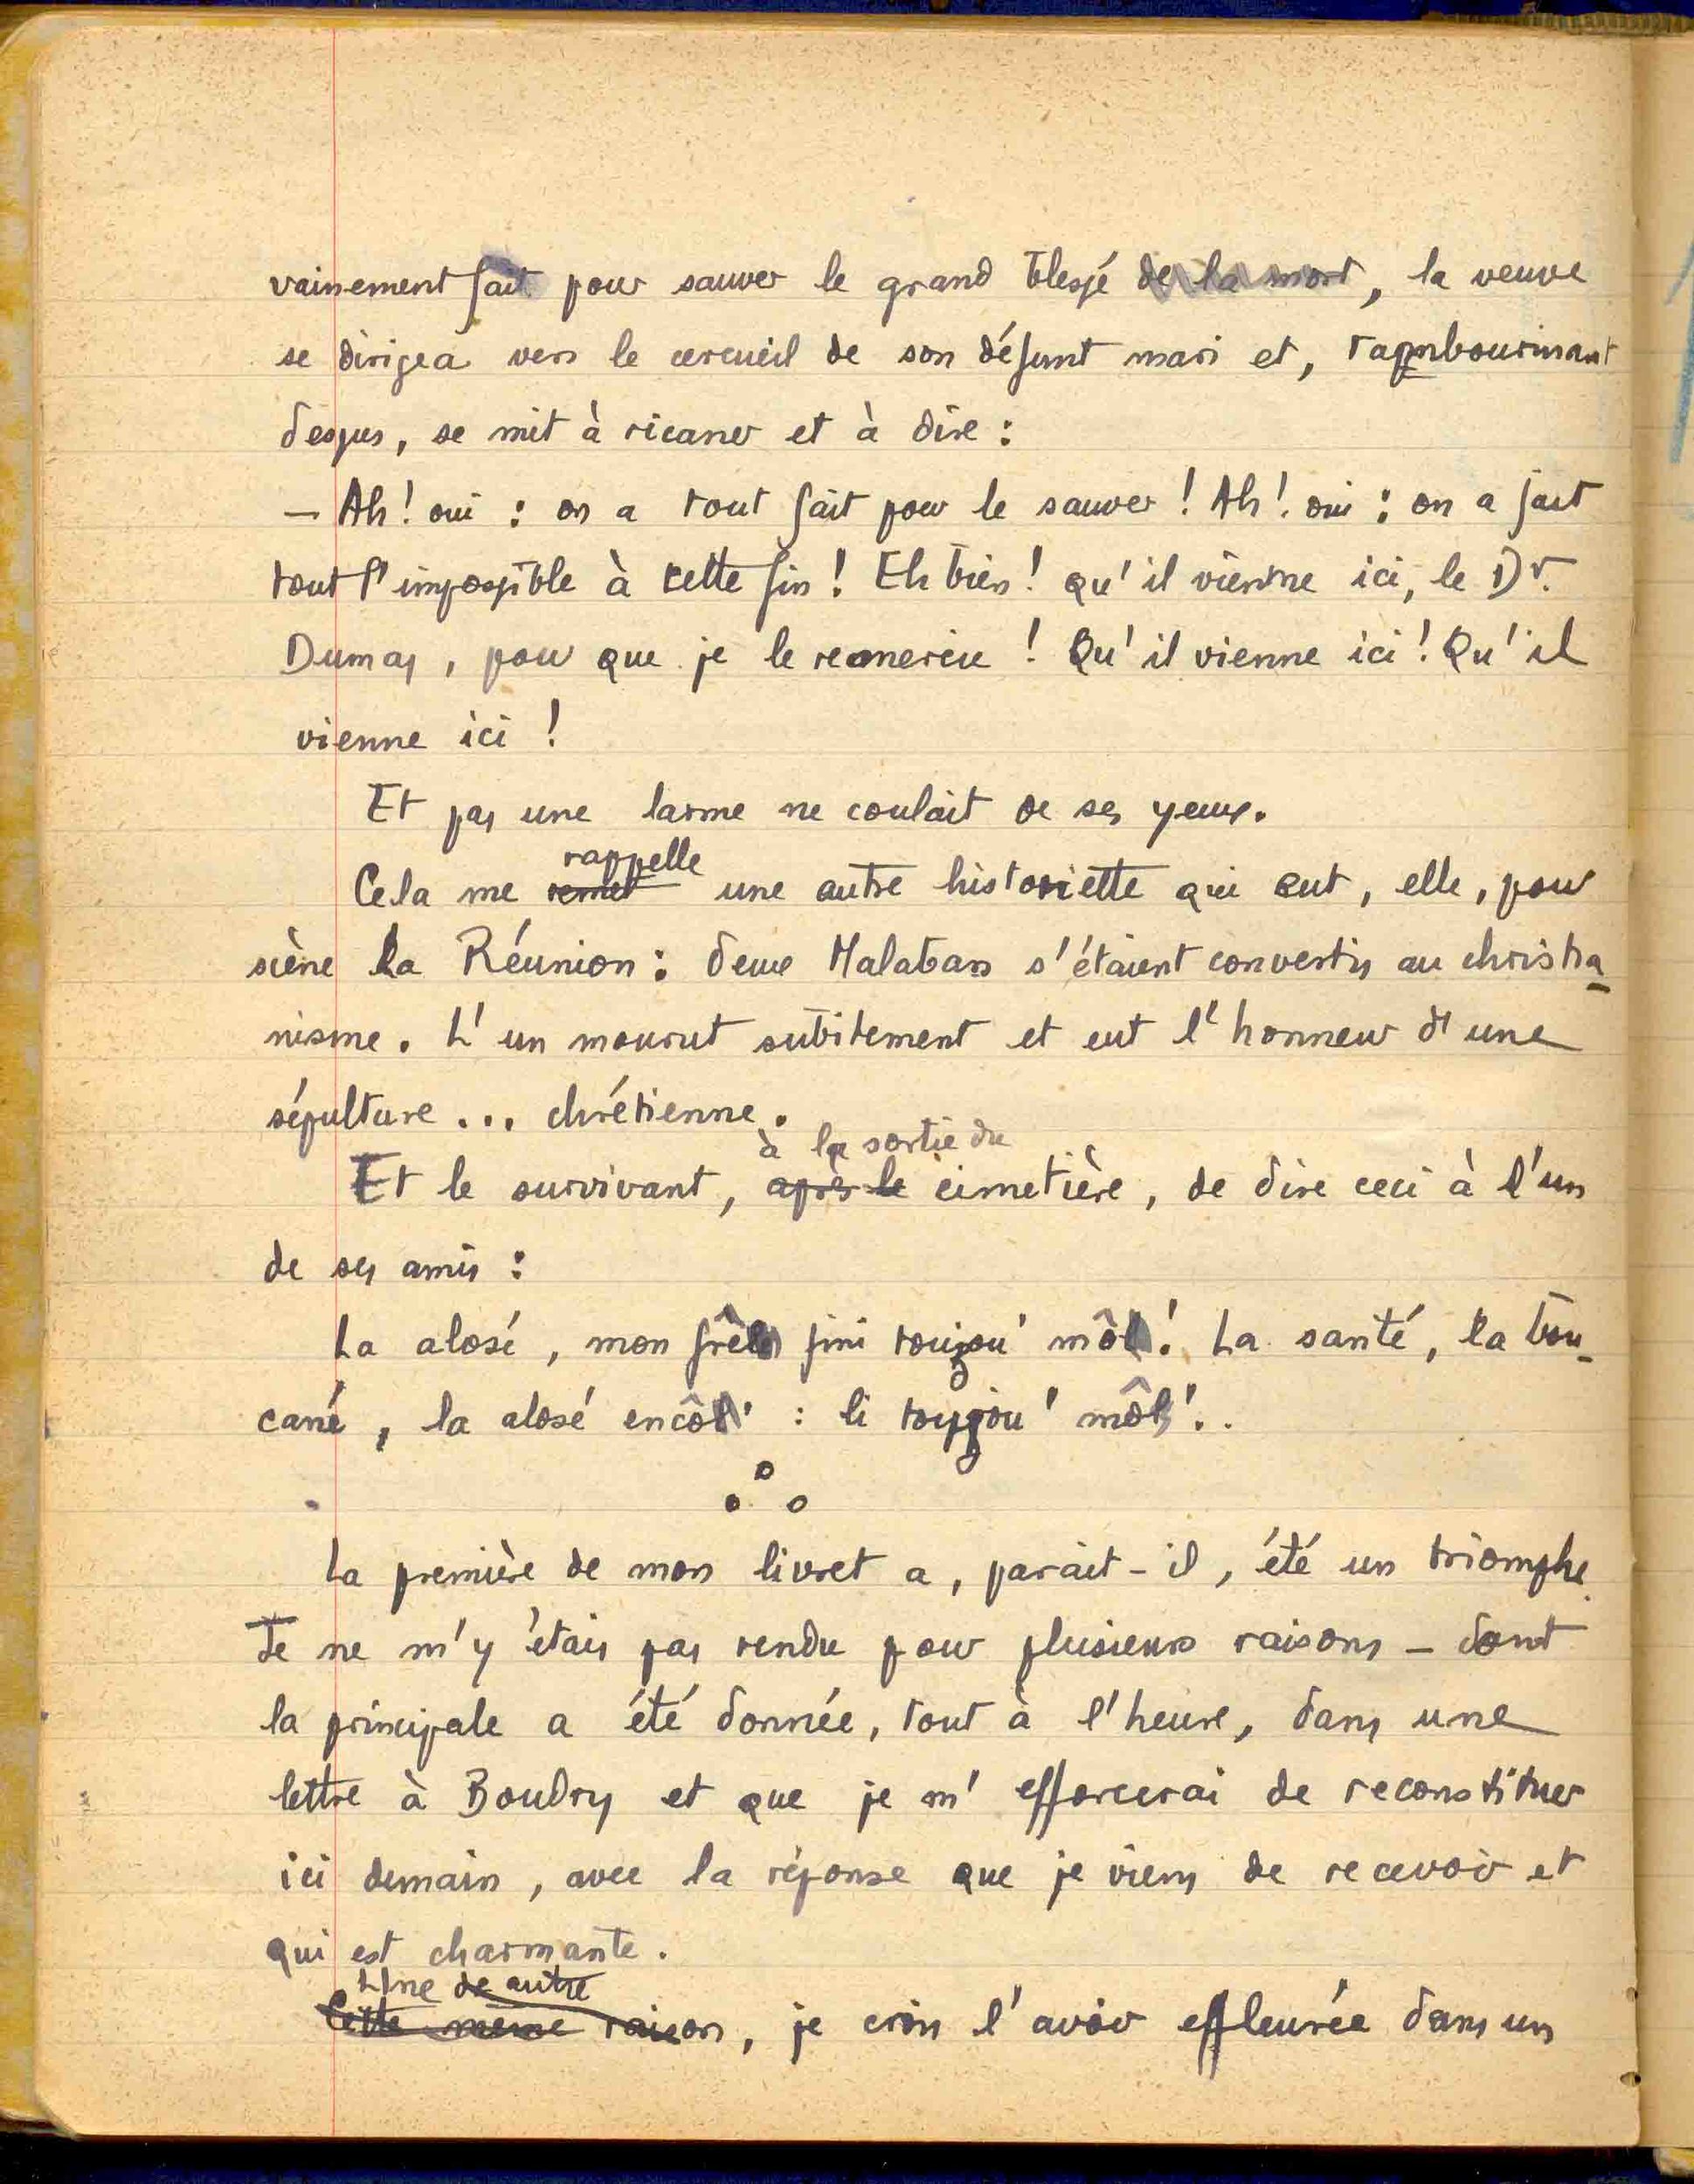 vainement fait pour sauver le grand blessé de la mort, la veuve
se dirigea vers le cercueil de son défunt mari et, tambourinant
dessus, se mit à ricaner et à dire :
— Ah ! oui : on a tout fait pour le sauver ! Ah ! oui : on a fait
tout l'impossible à cette fin ! Eh bien ! qu'il vienne ici, le Dr.
Dumas, pour que je le remercie ! Qu'il vienne ici ! Qu'il
vienne ici !
Et pas une larme ne coulait de ses yeux.
rappelle
Cela me remet une autre historiette qui eut, elle, pour
scène la Réunion : deux Malabars s'étaient convertis au christia-
nisme. L'un mourut subitement et eut l'honneur d'une
sépulture ... chrétienne.
à la sortie du
Et le survivant, après le cimetière, de dire ceci à l'un
de ses amis :
La alosé, mon frêl fini toujou' môl ! La santé, la bou-
cané, la alosé encôl' : li toujou' môl' ..
La première de mon livret a, parait-il, été un triomphe.
Je ne m'y étais pas rendu pour plusieurs raisons — dont
la principale a été donnée, tout à l'heure, dans une
lettre à Boudry et que je m'efforcerai de reconstituer
ici demain, avec la réponse que je viens de recevoir et
qui est charmante.
Une de autre
Cette même raison, je crois l'avoir effleurée dans un